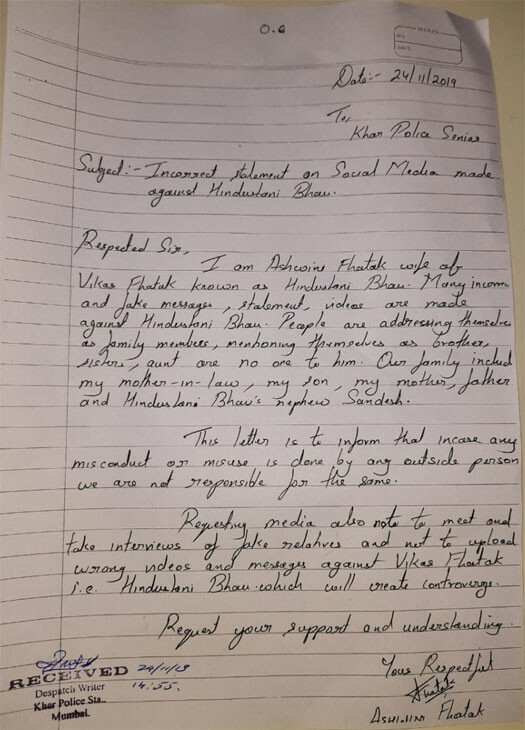 O.G
DATE
Date:- 24/11/2019
To,
Khar Police Senior
Subject:- Incorrect statement on Social Media made
against Hindustani Bhau.
Respected Sir,
I am Ashwini Fhatak wife of
Vikas Fhatak known as Hindustani Bhau. Many incorre
and fake messages, statement, videos are made
against Hindustani Bhau. People are addressing themselve
as family members, mentioning themselves as brother,
sisters, aunt are no one to him. Our family includ
my mother-in-law, my son, my mother, father
and Hindustani Bhau's nephew Sandesh.
This letter is to inform that incase any
misconduct or misuse is done by any outside person
we are not responsible for the same.
Requesting media also note to meet and
take interviews of fake relatives and not to upload
wrong videos and messages against Vikas Fhatak
i.e. Hindustani Bhau which will create controverge.
Request your support and understanding.
Your Respectful
Fhatak
ASHWINI Fhatak
RECEIVED 24/11/19
14:55.
Despatch Writer
Khar Police Sta.,
Mumbai.